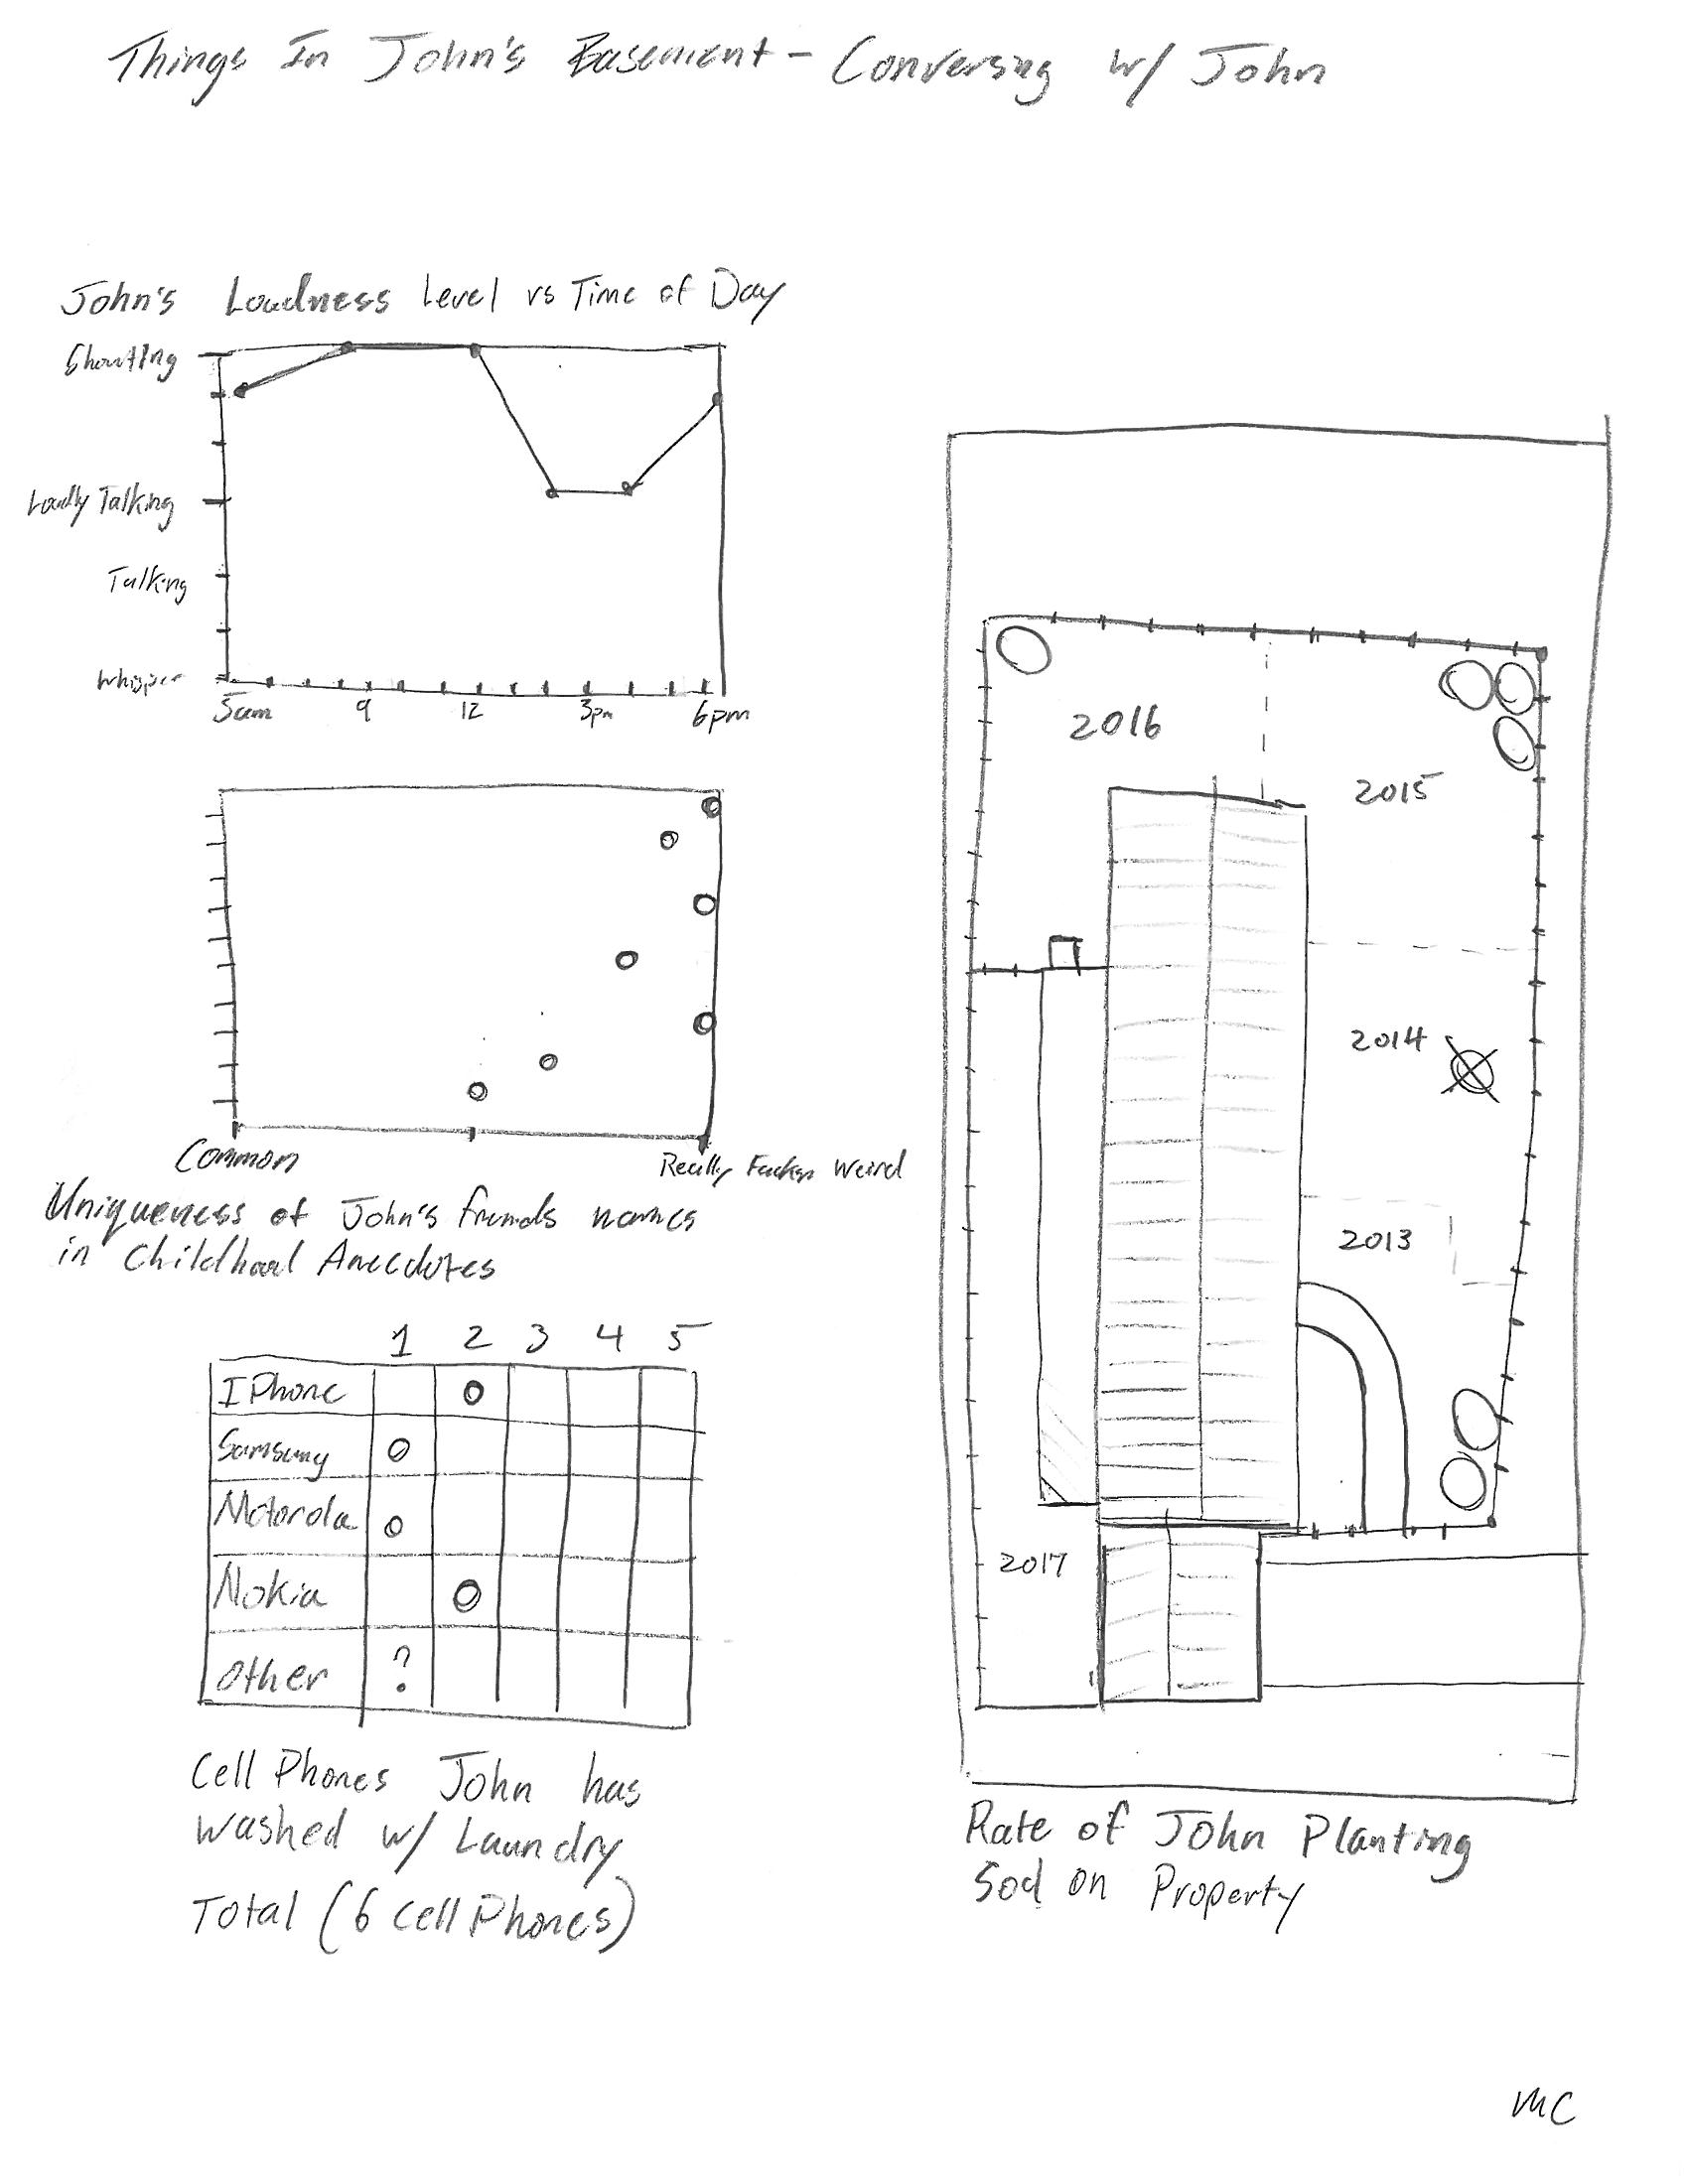 Things In John's Basement - Conversing w/ John
John's Loudness Level vs Time of Day
Shouting
Loudly Talking
Talking
Whisper
5am 9 12 3pm 6pm
Common Really Fucken Weird
Uniqueness of John's friends names
in Childhood Anecdotes
1 2 3 4 5
IPhone
Samsung
Motorola
Nokia
Other ?
Cell Phones John has
Washed w/ Laundry
Total (6 Cell Phones)
2016
2015
2014
2013
2017
Rate of John Planting
Sod on Property
MC